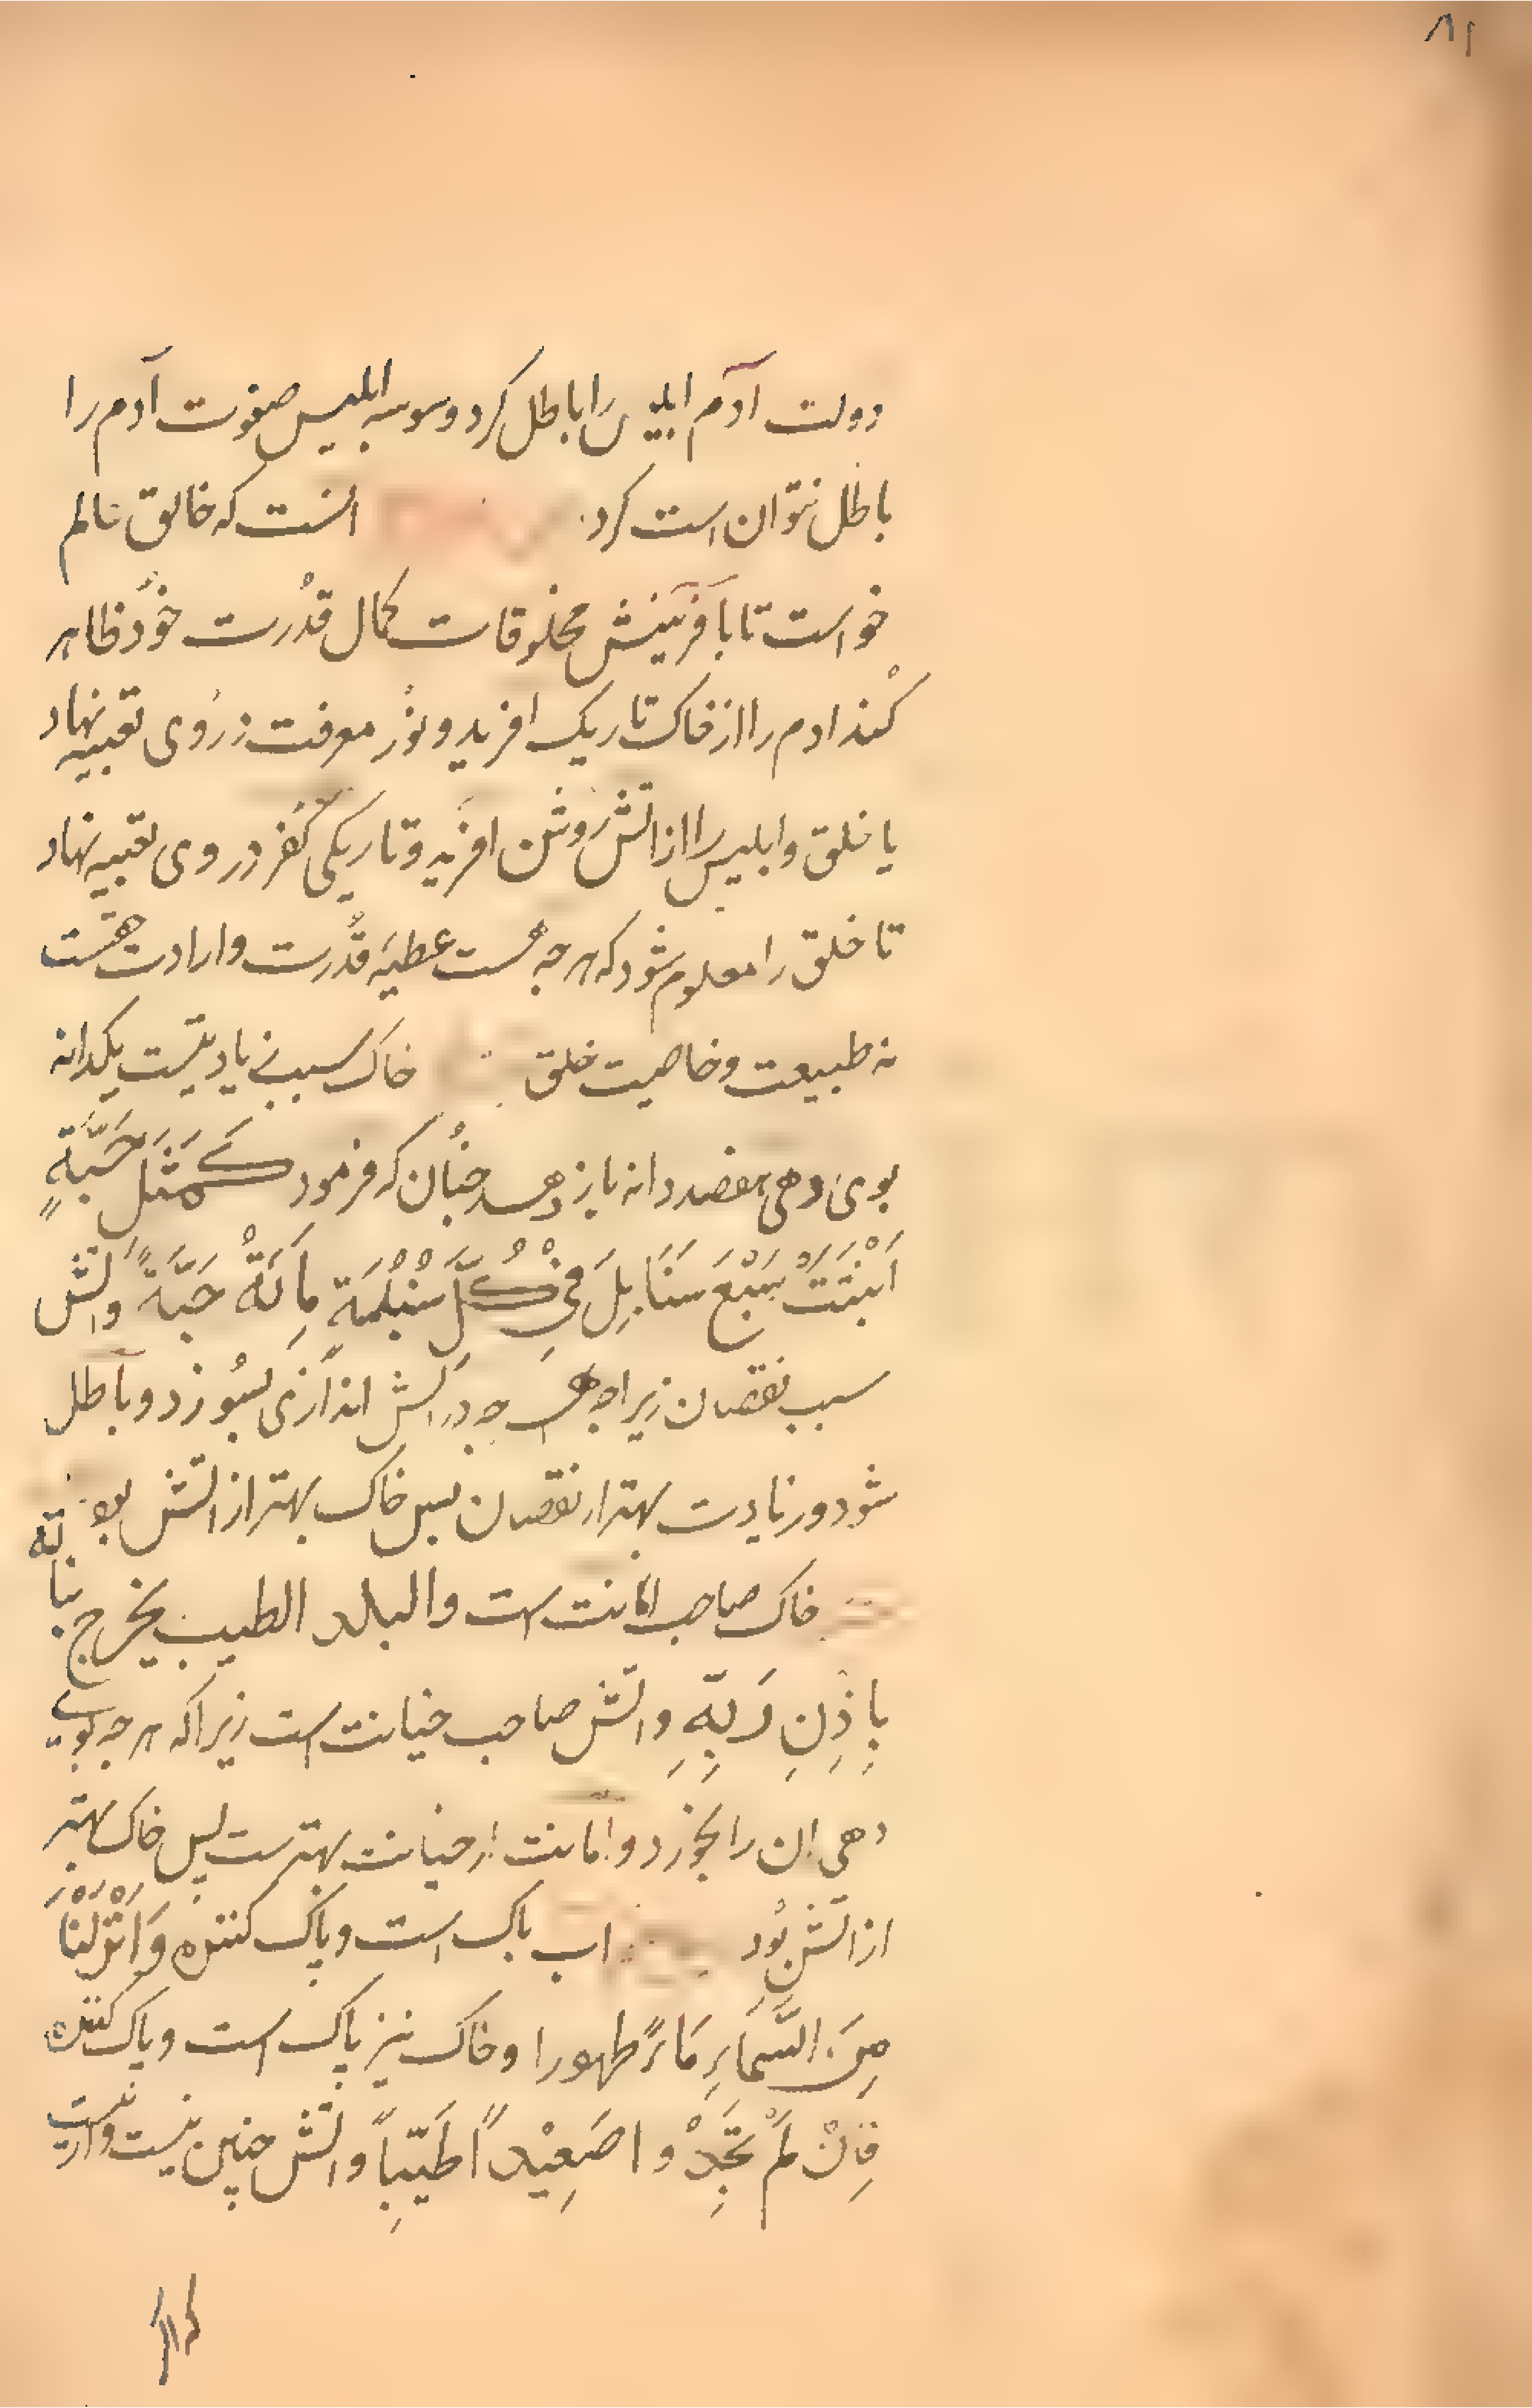 ۸۱
دولت آدم ابلیس را باطل کرد وسوسه ابلیس صفوت آدم را
باطل نتوان است کرد انست که خالق عالم
خواست تا بآفرینش مخلوقات کمال قدُرت خوُد ظاهر
کند ادم را از خاک تاریک افرید و نوُر معرفت در وی تعبیه نهاد
یا خلق و ابلیس را از اتش روشن افرید و تاریکی کفُر در وی تعبیه نهاد
تا خلق را معلوم شود که هر جه هست عطیه قدُرت و ارادت هست
نه طبیعت و خاصیت خلق خاک سبب زیادتیست یکدانه
بوی دهی هفصد دانه باز دهد جنان که فرمود کَمَثَلِ حَبَّةٍ
اَنْبَتَتْ سَبْعَ سَنَابِلَ فِي كُلِّ سُنْبُلَةٍ مِائَةُ حَبَّةً واتش
سبب نقصان زیرا جه هر جه در اتش اندازی بسوُزد و باطل
شود و زیادت بهتر از نقصان بس خاک بهتر از اتش بود
خاک صاحب امانت است والبلد الطیب یخرج نباته
بِاِذْنِ رَبِّهِ و اتش صاحب خیانت است زیرا که هر جه بوی
دهی ان را بخورد و امانت از خیانت بهترست بس خاک بهتر
از اتش بوُد اب باک است و پاک کننده وَاَنْزَلْنَا
مِنَ السَّمَاءِ مَاءً طهورا و خاک نیز پاک است و پاک کننده
فَاِنْ لَمْ تَجِدُوْا صَعِیْداً طَیِّباً و اتش چنین نیست